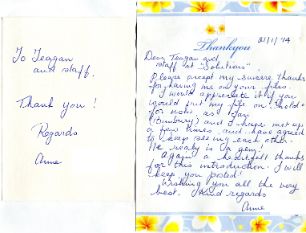 To Teagan
and staff.
Thank you!
Regards
Anne
Thankyou
Dear Teagan and
staff at "Solutions"
Please accept my sincere thanks
for having me on your files.
I would appreciate it if you
would put my file on "Hold"
for now, as
(Bunbury) and I have met up
a few times and have agreed
to keep seeing each other.
He really is a gem!
Again a heartfelt thanks
for this introduction. I will
keep you posted!
Wishing you all the very
best. Kind regards
Anne